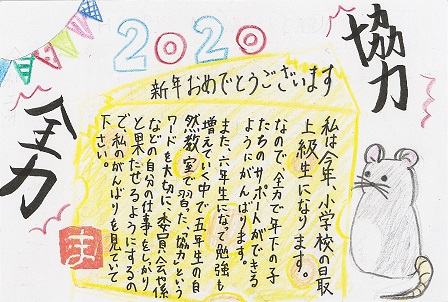 2020
協力
新年おめでとうございます
全力
私は今年、小学校の最
上級生になります。
なので、全力で年下の子
たちのサポートができる
ようにがんばります。
また、六年生になて勉強も
増えていく中で五年生の自
然教室で習った、「協力」という
ワードを大切に、委員会や係
などの自分の仕事をしっかり
と果たせるようにするの
で、私のがんばりを見ていて
下さい。
ま